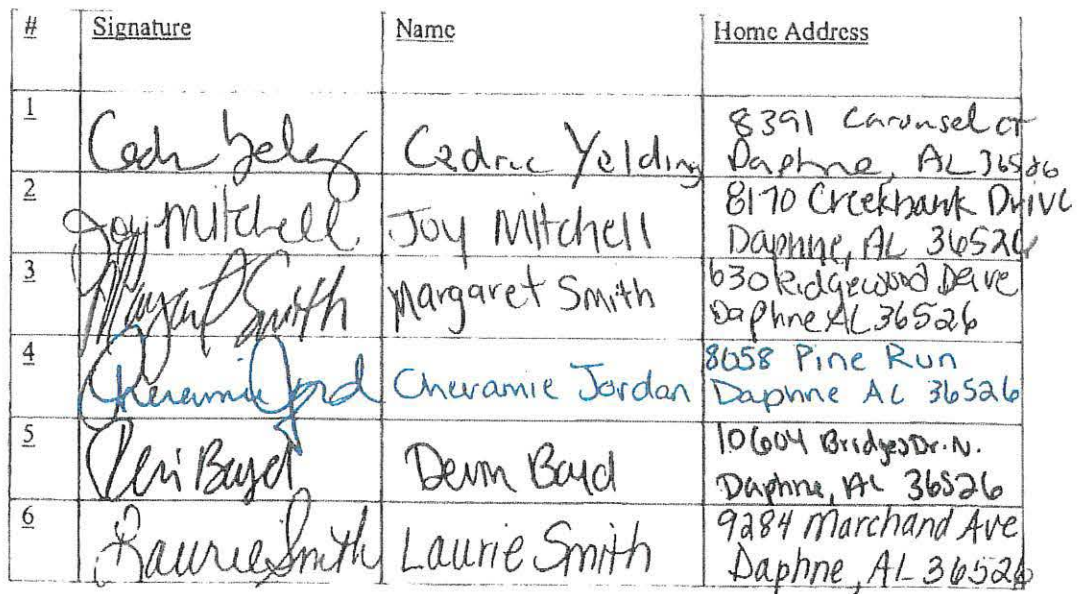 # Signature Name Home Address
1 Cedric Yelding 8391 Carousel ct
Daphne, AL 36526
2 Joy Mitchell Joy Mitchell 8170 Creekbank Drive
Daphne, AL 36526
3 Margaret Smith Margaret Smith 630 Ridgewood Drive
Daphne AL 36526
4 Cheramie Jord Cheramie Jordan 8058 Pine Run
Daphne AL 36526
5 Boyd 10604 Bridges Dr. N.
Daphne, AL 36526
6 Laurie Smith Laurie Smith 9284 Marchand Ave
Daphne, AL 36526